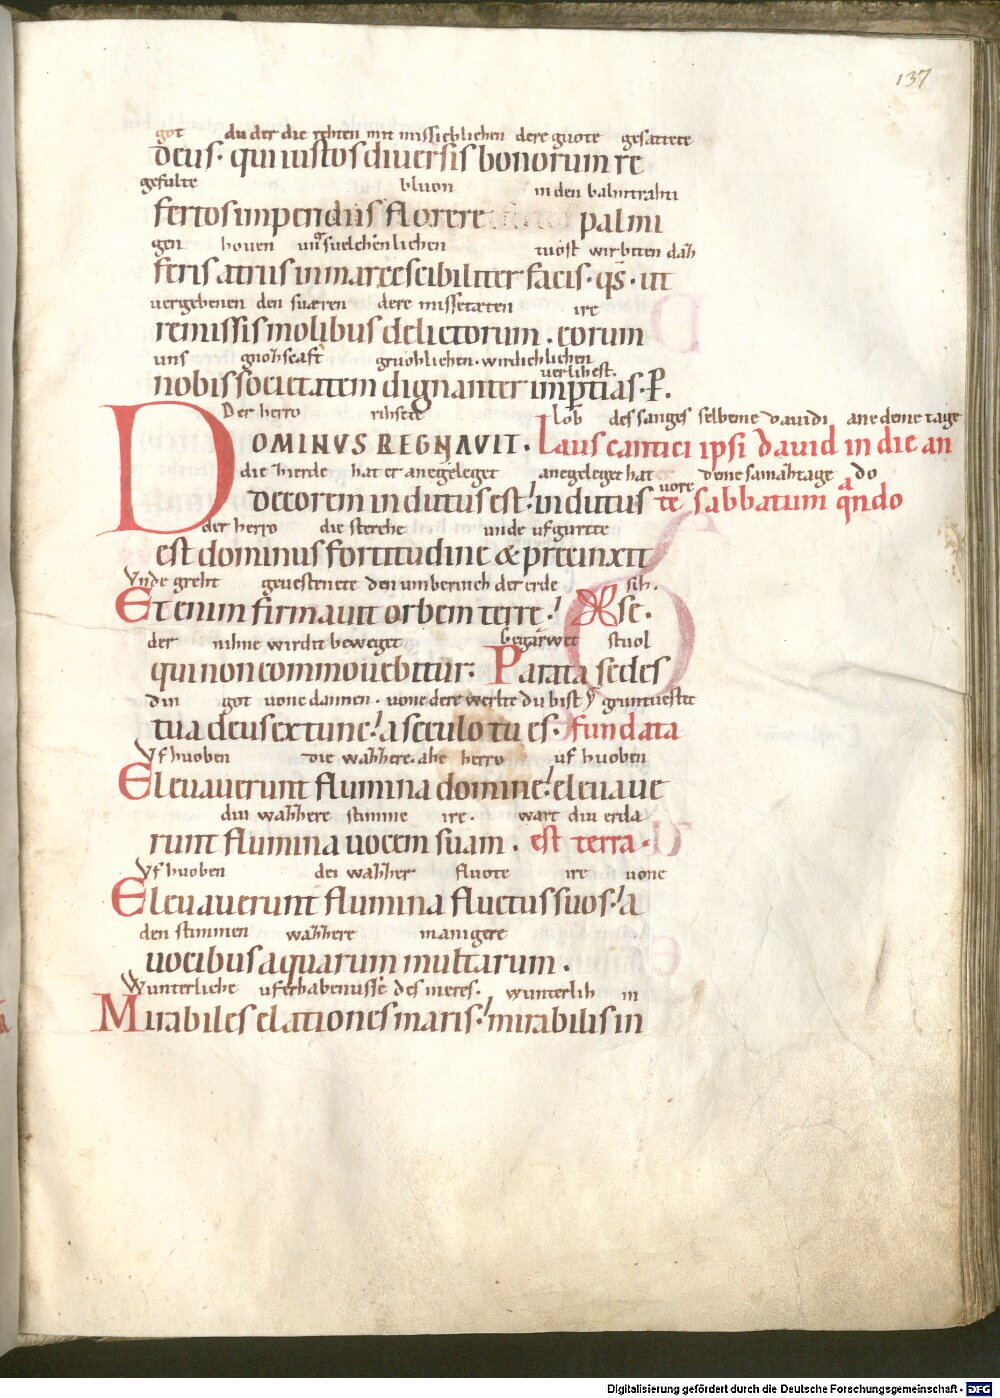 137
got du der die rehten mit misslichlichen dere guote gesattete
deus· qui iustos diuersis bonorum re
gefulte bluon in den balmtrahin
fertos impendiis florere palmi
gen houen uñ suelchenlichen tuost wir biten dah
feris atriis inmarcescibiliter facis· qs̄· ut
vergebenen den suæren dere missetæten ire
remissis molibus delictorum· eorum
uns gnohscaft gnuohlichen· wirdichlichen verlihest·
nobis societatem dignanter imptias· P.
Der herro rihsete Lob des sanges selbeme dauidi ane deme tage
DOMINVS REGNAVIT· Laus cantici ipsi dauid in die an
die zierde hat er anegeleget anegeleget hat vore deme samztage do
decorem indutus est! indutus te sabbatum qndo
der herro die sterche unde ufgurtte
est dominus fortitudine & precinxit
Vnde greht geuestenete den umberinch der erde sih·
Etenim firmauit orbem terre! se·
der nihne wirdit beweget begarwet stuol
qui non commouebitur· Parata sedes
din got uone dannen· uone dere werlte du bist gruntuestet
tua deus extunc! a seculo tu es· fundata
Vf huoben die wazzere ahe herro uf huoben
Eleuauerunt flumina domine! eleuaue
diu wazzere stimme ire· wart diu erda
runt flumina uocem suam· est terra·
Vf huoben dei wazzer fluote ire uone
Eleuauerunt flumina fluctus suos! a
den stimmen wazzere manigere
uocibus aquarum multarum·
Wunterliche uferhabenusse des meres· wunterlih in
Mirabiles elationes maris! mirabilis in
Digitalisierung gefördert durch die Deutsche Forschungsgemeinschaft - DFG